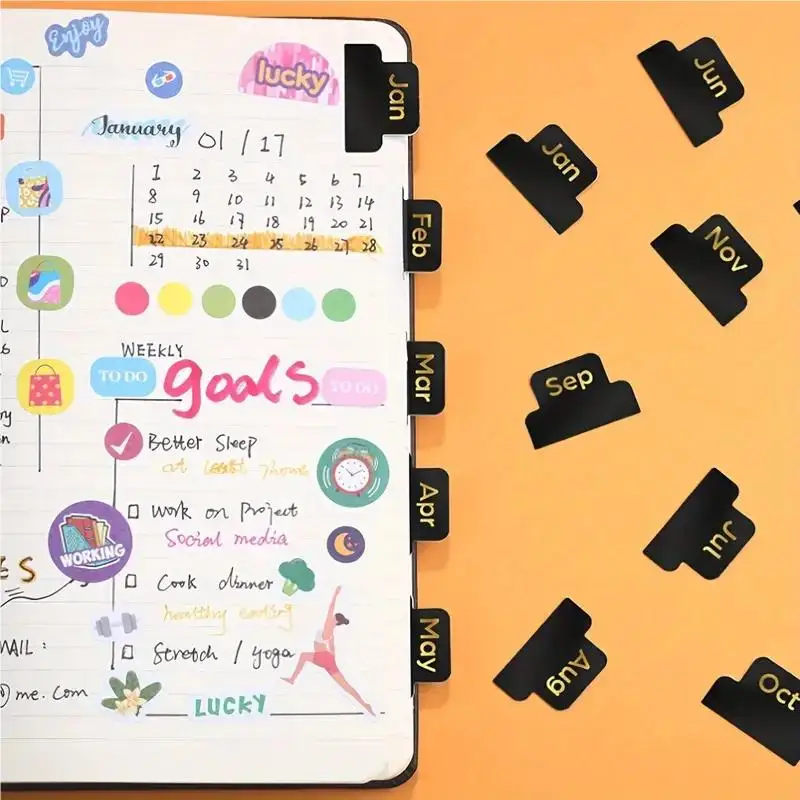 Enjoy
lucky
January 01 / 17
1 2 3 4 5 6 7
8 9 10 11 12 13 14
15 16 17 18 19 20 21
22 23 24 25 26 27 28
29 30 31
WEEKLY
TO DO goals TO DO
Better Sleep
at least
Work on Project
Social media
WORKING
Cook dinner
healthy eating
Stretch / yoga
MAIL:
@me.com
LUCKY
Jan
Feb
Mar
Apr
May
Jun
Jan
Nov
Sep
Jul
Aug
Oct